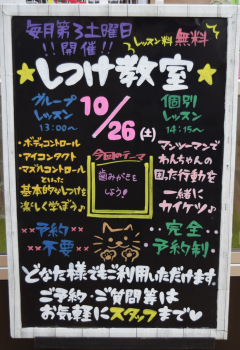 毎月第3土曜日
!!開催!!
レッスン料 無料
★しつけ教室★
グループ
レッスン
13:00〜
10/26(土)
個別
レッスン
14:15〜
・ボディコントロール
・アイコンタクト
・マズルコントロール
といった
基本的なしつけを
楽しく学ぼう♪
今回のテーマ
歯みがきを
しよう!
マンツーマンで
わんちゃんの
困った行動を
一緒に
カイケツ♪
予約
不要
完全
予約制
どなた様でもご利用いただけます。
ご予約・ご質問等は
お気軽にスタッフまで♥